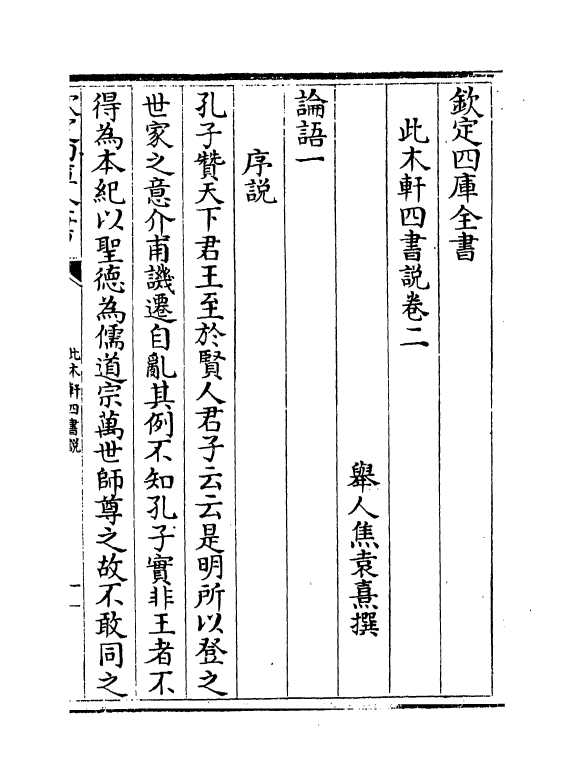 欽定四庫全書
此木軒四書説卷二
舉人焦袁熹撰
論語一
序説
孔子贊天下君王至於賢人君子云云是明所以登之
世家之意介甫譏遷自亂其例不知孔子實非王者不
得為本紀以聖德為儒道宗萬世師尊之故不敢同之
此木軒四書説
一